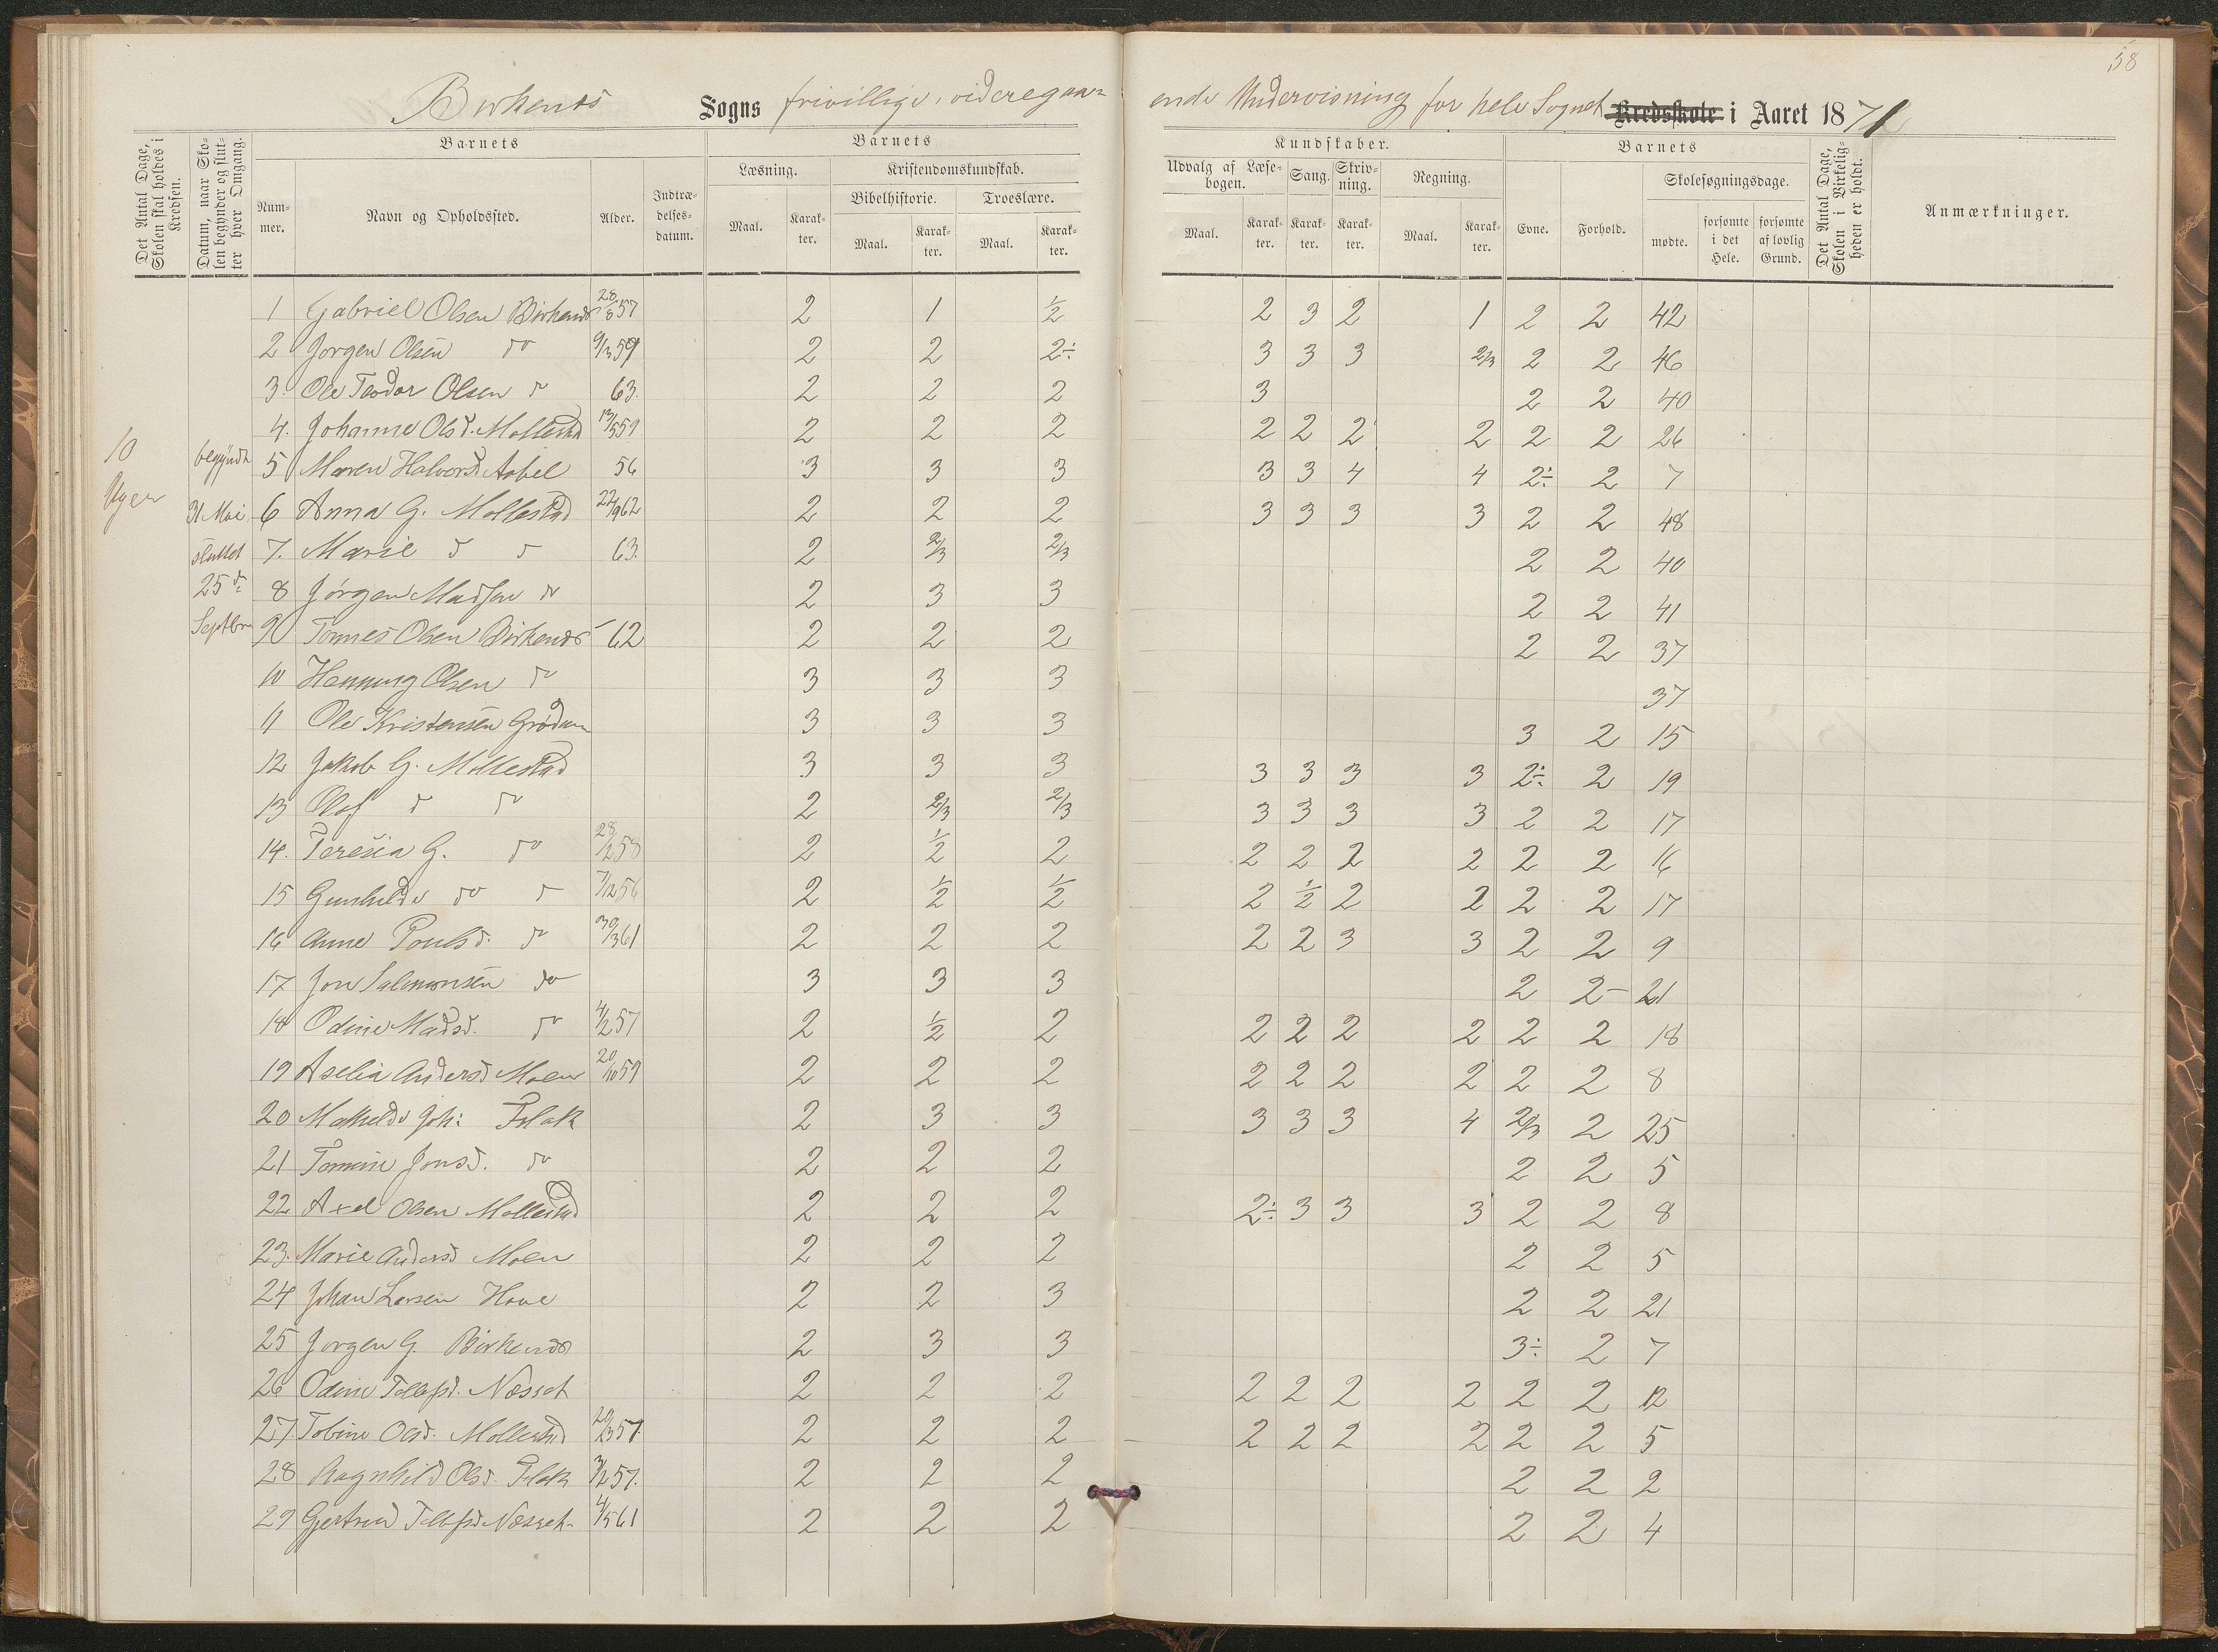 58
Birkenes Sogns frivillige, videregaaende Undervisning for hele Sognet Kredsskole i Aaret 1871
Det Antal Dage, Skolen skal holdes i Kredsen.
Datum, naar Skolen begynder og slutter hver Omgang.
Barnets
Nummer.
Navn og Opholdssted.
Alder.
Indtrædelsesdatum.
Barnets
Læsning.
Maal. Karakter.
Kristendomskundskab.
Bibelhistorie.
Maal. Karakter.
Troeslære.
Maal. Karakter.
Kundskaber.
Udvalg af Læsebogen.
Maal. Karakter.
Sang.
Karakter.
Skrivning.
Karakter.
Regning.
Maal. Karakter.
Barnets
Evne. Forhold.
Skolesøgningsdage.
mødte.
forsømte i det Hele.
forsømte af lovlig Grund.
Det Antal Dage, Skolen i Virkeligheden er holdt.
Anmærkninger.
10 Uger
begyndt 31 Mai, sluttet 25 d. Septbr
1 Gabriel Olsen Birkenes 28/8 57 2 1 1/2 2 3 2 1 2 2 42
2 Jørgen Olsen do 9/3 59 2 2 2÷ 3 3 3 2/3 2 2 46
3. Ole Teodor Olsen do 63. 2 2 2 3 2 2 40
4. Johanne Olsd. Mollestad 13/5 59 2 2 2 2 2 2 2 2 2 26
5 Maren Halvorsd. Aabel 56 3 3 3 3 3 4 4 2÷ 2 7
6 Anna G. Mollestad 22/9 62 2 2 2 3 3 3 3 2 2 48
7. Marie d d 63. 2 2/3 2/3 2 2 40
8 Jørgen Madsen do 2 3 3 2 2 41
9 Tønnes Olsen Birkenes 62 2 2 2 2 2 37
10 Henning Olsen do 3 3 3 37
11 Ole Kristensen 3 3 3 3 2 15
12 Jakob G. Mollestad 3 3 3 3 3 3 3 2÷ 2 19
13 Olaf d do 2 2/3 2/3 3 3 3 3 2 2 17
14. Teresia G. do 28/2 58 2 1/2 2 2 2 2 2 2 2 16
15 Gunhilde do d 7/12 56 2 1/2 1/2 2 1/2 2 2 2 2 17
16 Anne Poulsd. do 30/3 61 2 2 2 2 2 3 3 2 2 9
17 Jon Salmonsen do 3 3 3 2 2 - 21
18 Odine Madsd. do 4/2 57 2 1/2 2 2 2 2 2 2 2 18
19 Aselia Andersd Moen 20/10 59 2 2 2 2 2 2 2 2 2 8
20 Mathilde Joh: Flak 2 3 3 3 3 3 4 2/3 2 25
21 Tomine Jonsd. do 2 2 2 2 2 5
22 Axel Olsen Mollestad 2 2 2 2÷ 3 3 3 2 2 8
23. Marie Andersd Moen 2 2 2 2 2 5
24 Johan Larsen Hove 2 2 3 2 2 21
25 Jørgen G. Birkenes 2 3 3 3÷ 2 7
26 Odine Tellefsd. Næsset 2 2 2 2 2 2 2 2 2 12
27. Tobine Olsd. Mollestad 29/3 57. 2 2 2 2 2 2 2 2 2 5
28 Ragnhild Olsd. Flak 3/2 57. 2 2 2 2 2 2
29 Gjertrud Tellefsd Næsset 4/5 61 2 2 2 2 2 4